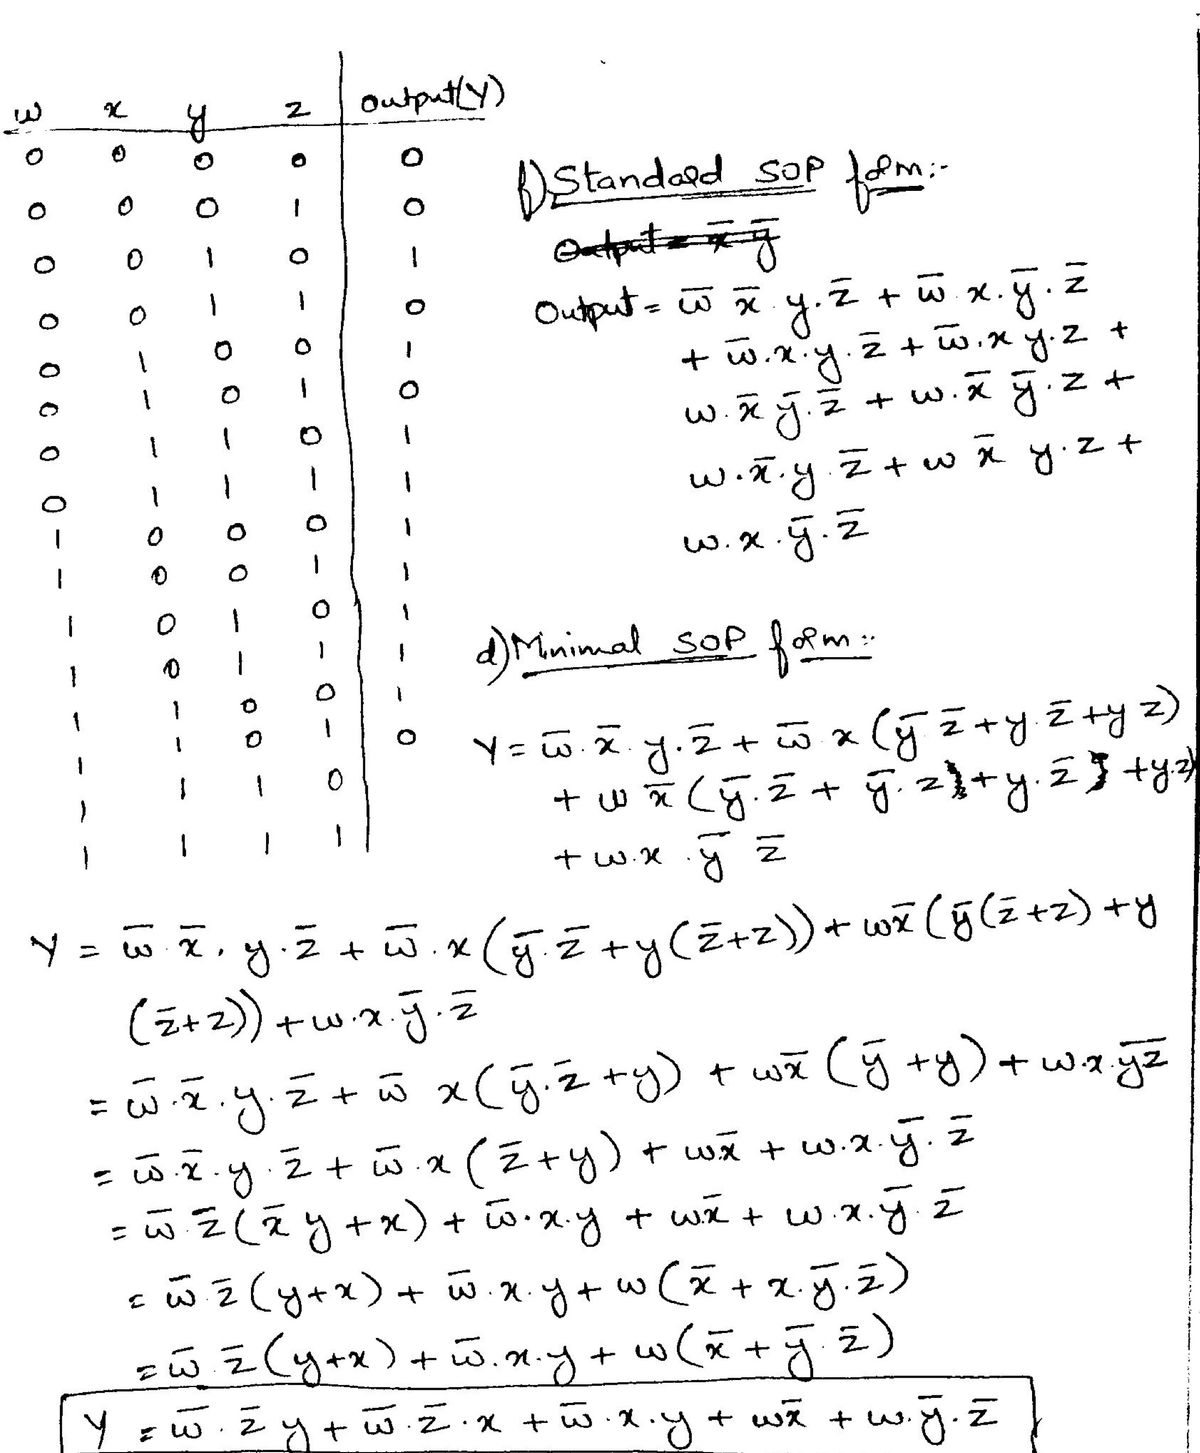 w x y z output(Y)
0 0 0 0 0
0 0 0 1 0
0 0 1 0 1
0 0 1 1 0
0 1 0 0 1
0 1 0 1 0
0 1 1 0 1
0 1 1 1 1
1 0 0 0 1
1 0 0 1 1
1 0 1 0 1
1 0 1 1 1
1 1 0 0 1
1 1 0 1 0
1 1 1 0
1 1 1 1
f) Standard SOP form:-
Output = x̅ y̅
Output = w̅ x̅ y.z̅ + w̅ x.y̅.z̅
+ w̅.x.y.z̅ + w̅.x y.z +
w.x̅ y̅.z̅ + w.x̅ y̅.z +
w.x̅.y z̅ + w x̅ y.z +
w.x.y̅.z̅
d) Minimal SOP form:-
Y = w̅.x̅ y.z̅ + w̅ x (y̅ z̅ + y.z̅ + y z)
+ w x̅ (y̅.z̅ + y̅.z + y.z̅ + y.z)
+ w.x.y̅ z̅
Y = w̅.x̅.y.z̅ + w̅.x (y̅.z̅ + y (z̅+z)) + wx̅ (y̅(z̅+z) + y
(z̅+z)) + w.x.y̅.z̅
= w̅.x̅.y.z̅ + w̅ x(y̅.z̅ + y) + wx̅ (y̅ + y) + w.x.y̅z̅
= w̅.x̅.y.z̅ + w̅.x (z̅+y) + wx̅ + w.x.y̅.z̅
= w̅ z̅ (x̅ y + x) + w̅.x.y + wx̅ + w.x.y̅.z̅
= w̅ z̅ (y+x) + w̅.x.y + w (x̅ + x.y̅.z̅)
= w̅ z̅ (y+x) + w̅.x.y + w (x̅ + y̅.z̅)
Y = w̅.z̅ y + w̅.z̅.x + w̅.x.y + wx̅ + w.y̅.z̅